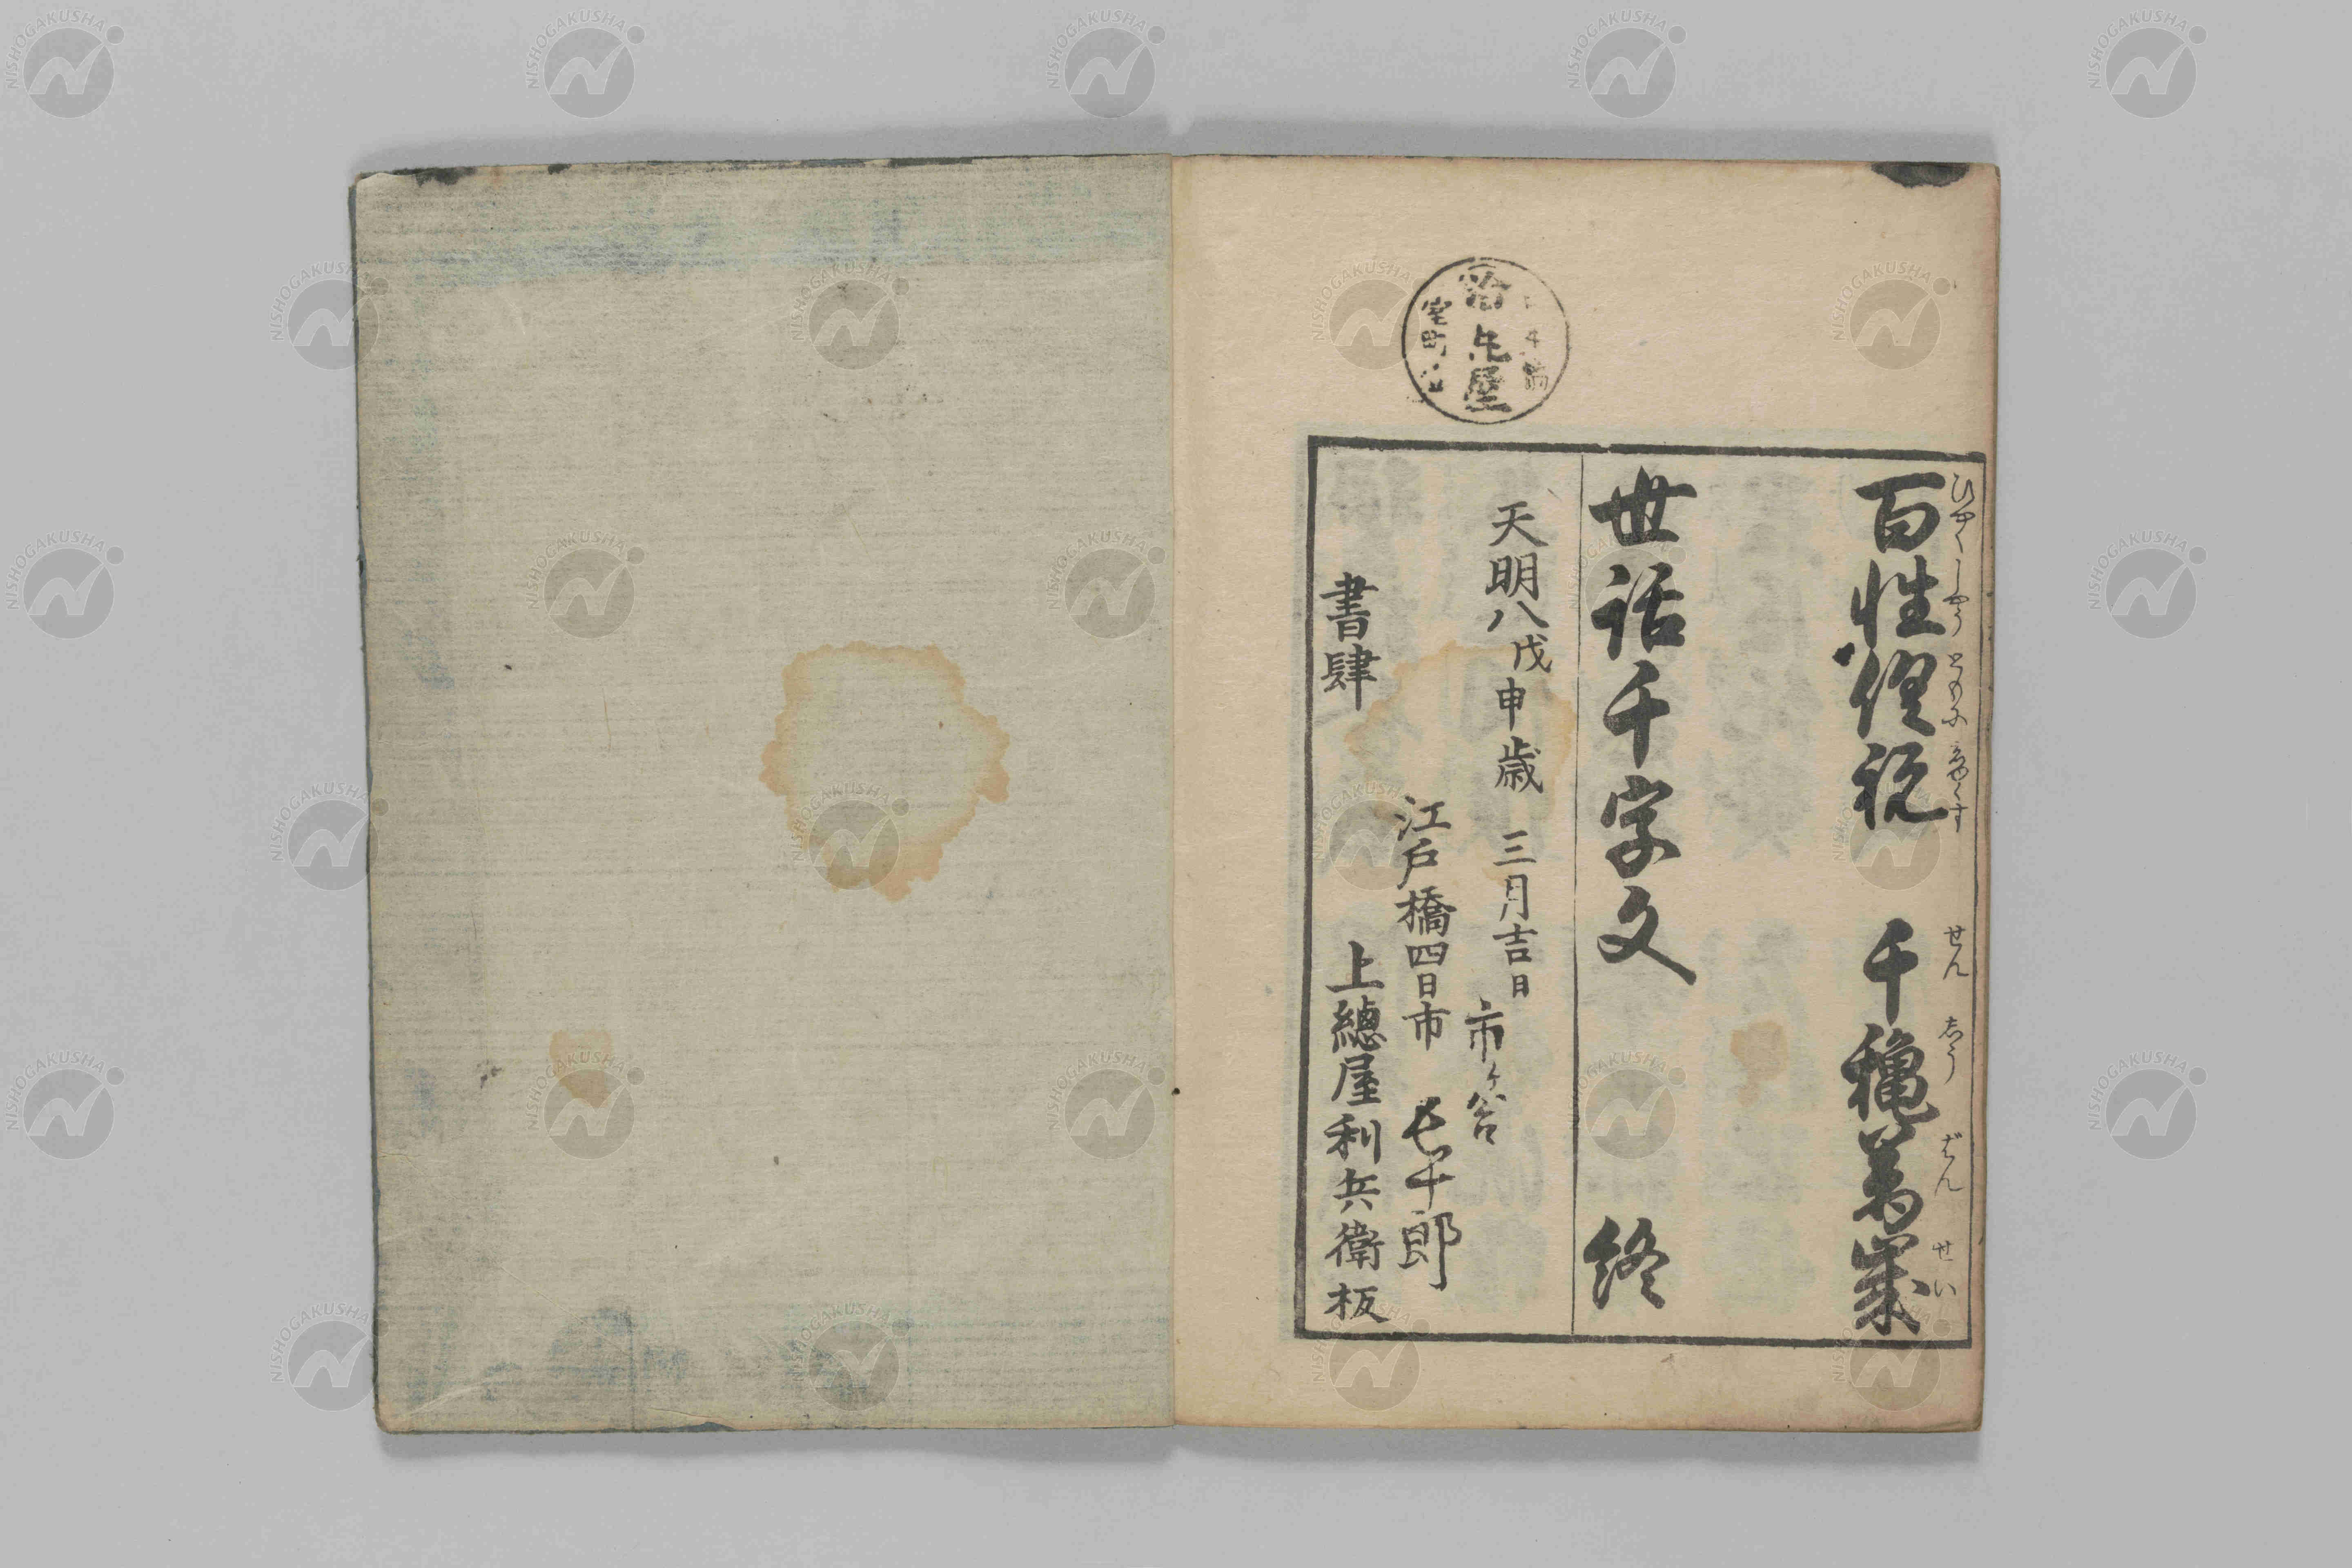 ひやくしやうともに志ゆくす せん志うばんせい
百性倶祝 千穐萬歳
世話千字文 終
天明八戊申歳 三月吉日
市ヶ谷
江戸橋四日市 十郎
書肆 上總屋利兵衛板
室町
屋
NISHOGAKUSHA